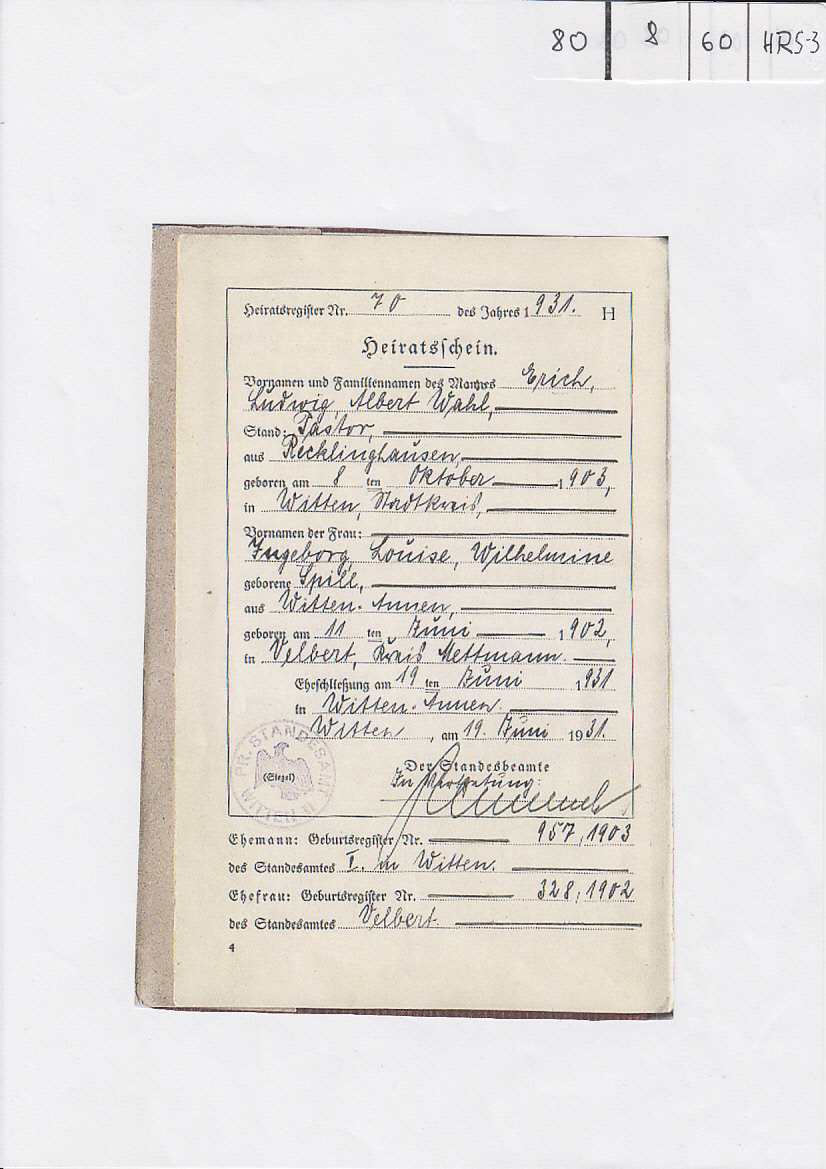 80 8 60 HRS-3
Heiratsregister Nr. 70 des Jahres 1931. H
Heiratsschein.
Vornamen und Familiennamen des Mannes Erich,
Ludwig, Albert Wahl,
Stand: Pastor,
aus Recklinghausen,
geboren am 8 ten Oktober 1903,
in Witten, Stadtkreis,
Vornamen der Frau:
Ingeborg, Louise, Wilhelmine
geborene Spill,
aus Witten-Annen,
geboren am 11 ten Juni 1902,
in Velbert, Kreis Mettmann.
Eheschließung am 19 ten Juni 1931
in Witten-Annen.
Witten, am 19. Juni 1931.
PR. STANDESAMT
(Siegel)
WITTEN
Der Standesbeamte
In Vertretung:
Ehemann: Geburtsregister Nr. 957, 1903
des Standesamtes I. in Witten.
Ehefrau: Geburtsregister Nr. 328, 1902
des Standesamtes Velbert.
4